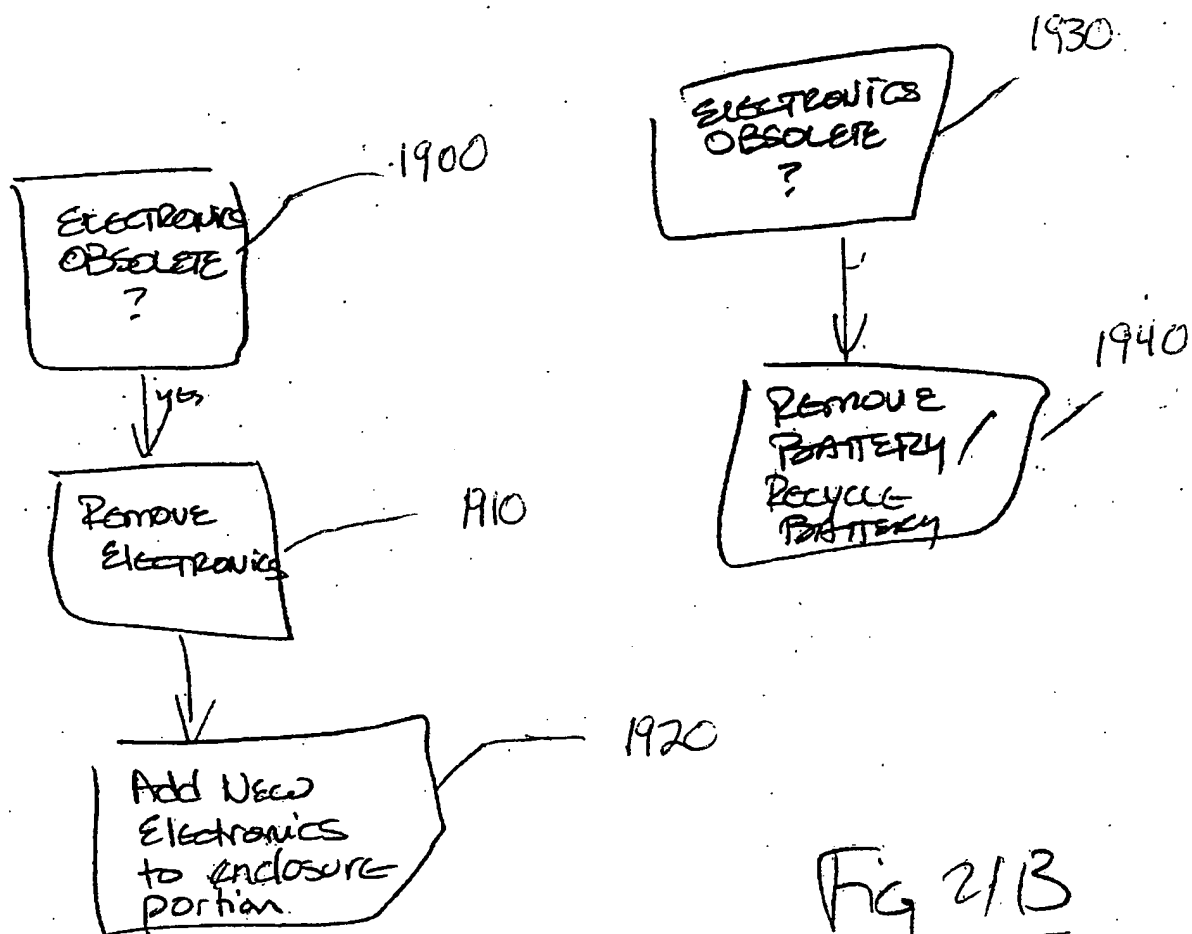 1900
ELECTRONICS
OBSOLETE
?
yes
REMOVE
ElECTRONICS
1910
Add New
Electronics
to enclosure
portion
1920
1930
ELECTRONICS
OBSOLETE
?
1940
REMOVE
BATTERY /
RECYCLE
BATTERY
Fig 21B